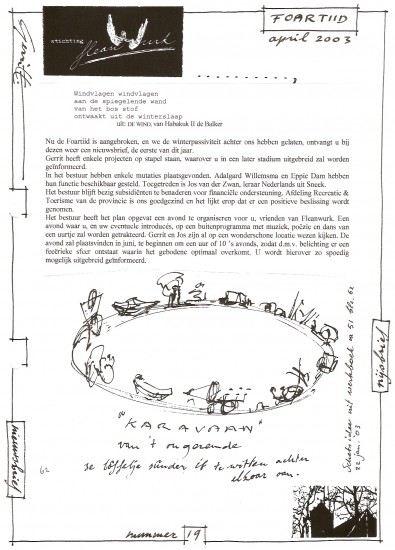 FOARTIID
april 2003
stichting
fleanwurk
Windvlagen windvlagen
aan de spiegelende wand
van het bos stof
ontwaakt uit de winterslaap
uit: DE WIND, van Habakuk II de Balker
Nu de Foartiid is aangebroken, en we de winterpassiviteit achter ons hebben gelaten, ontvangt u bij
dezen weer een nieuwsbrief, de eerste van dit jaar.
Gerrit heeft enkele projekten op stapel staan, waarover u in een later stadium uitgebreid zal worden
geïnformeerd.
In het bestuur hebben enkele mutaties plaatsgevonden. Adalgard Willemsma en Eppie Dam hebben
hun functie beschikbaar gesteld. Toegetreden is Jos van der Zwan, leraar Nederlands uit Sneek.
Het bestuur blijft bezig subsidiënten te benaderen voor financiële ondersteuning. Afdeling Recreatie &
Toerisme van de provincie is ons goedgezind en het lijkt erop dat er een positieve beslissing wordt
genomen.
Het bestuur heeft het plan opgevat een avond te organiseren voor u, vrienden van Fleanwurk. Een
avond waar u, en uw eventuele introducés, op een buitenprogramma met muziek, poëzie en dans van
een uurtje zal worden getrakteerd. Gerrit en Jos zijn al op een wonderschone locatie wezen kijken. De
avond zal plaatsvinden in juni, te beginnen om een uur of 10 's avonds, zodat d.m.v. belichting er een
feeërieke sfeer ontstaat waarin het gebodene optimaal overkomt. U wordt hierover zo spoedig
mogelijk uitgebreid geïnformeerd.
"KARAVAAN"
van 't ongerymde
se sjoffelje sûnder it te witten achter
elkoar oan.
62
22 jan. '03
nijsbrief
nieuwsbrief
nummer 19